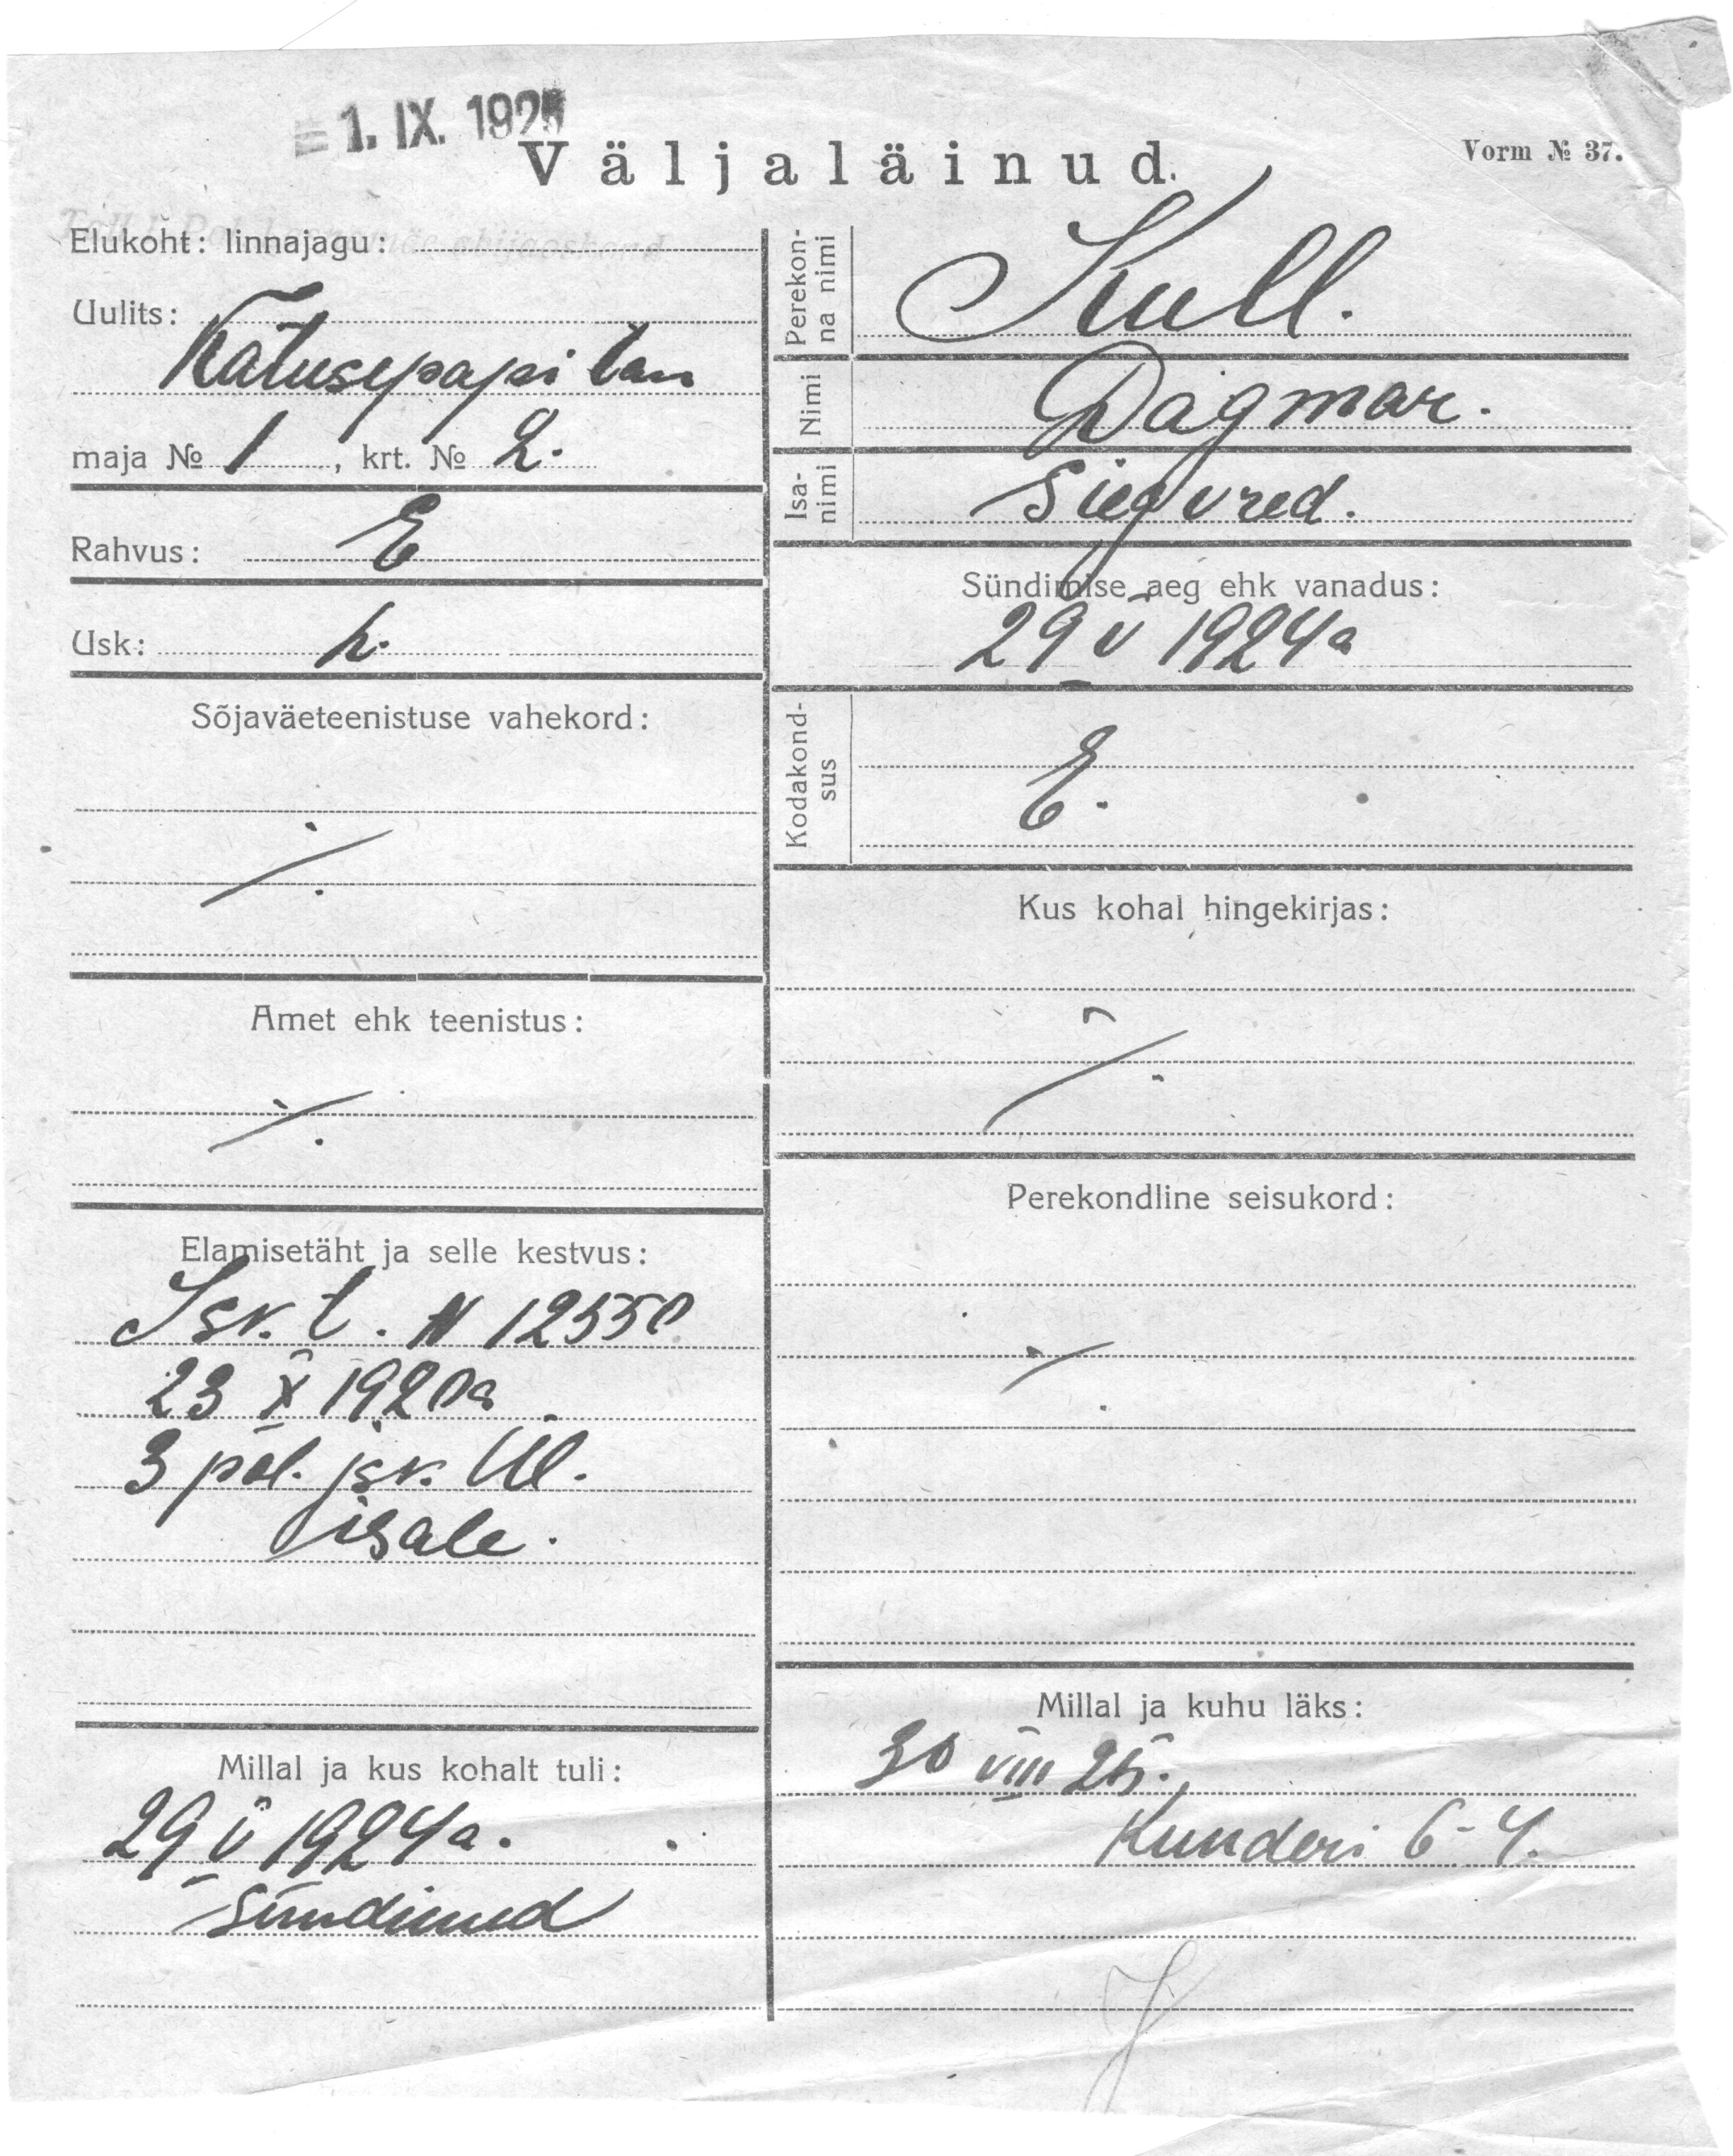 1. IX. 1925
Väljaläinud.
Vorm № 37.
Elukoht: linnajagu:
Uulits:
Katusepapi tän
maja № 1, krt. № 2.
Rahvus: E
Usk: h.
Sõjaväeteenistuse vahekord:
Amet ehk teenistus:
Elamisetäht ja selle kestvus:
Isk. t. N 12550
23 X 1920a
3 pol. jsk. Ül.
isale.
Millal ja kus kohalt tuli:
29 V 1924a.
Sündinud
Perekon-
na nimi
Kull.
Nimi
Dagmar.
Isa-
nimi
Siegvred.
Sündimise aeg ehk vanadus:
29 V 1924a
Kodakond-
sus
E.
Kus kohal hingekirjas:
Perekondline seisukord:
Millal ja kuhu läks:
30 VIII 25.
Kunderi 6-4.